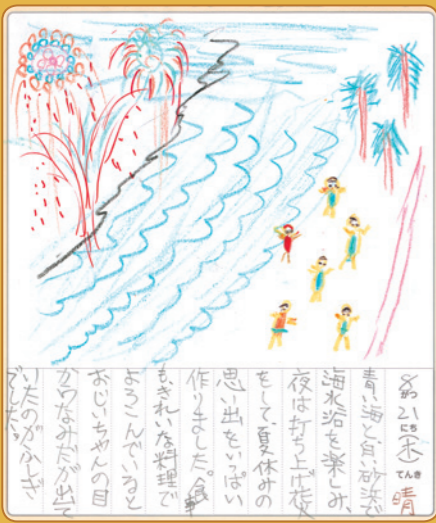 8がつ21にち(木)てんき 晴
青い海と白い砂浜で
海水浴を楽しみ、
夜は打ち上げ花火
をして、夏休みの
思い出をいっぱい
作りました。食事
もきれいな料理で
よろこんでいると
おじいちゃんの目
からなみだが出て
いたのがふしぎ
でした。